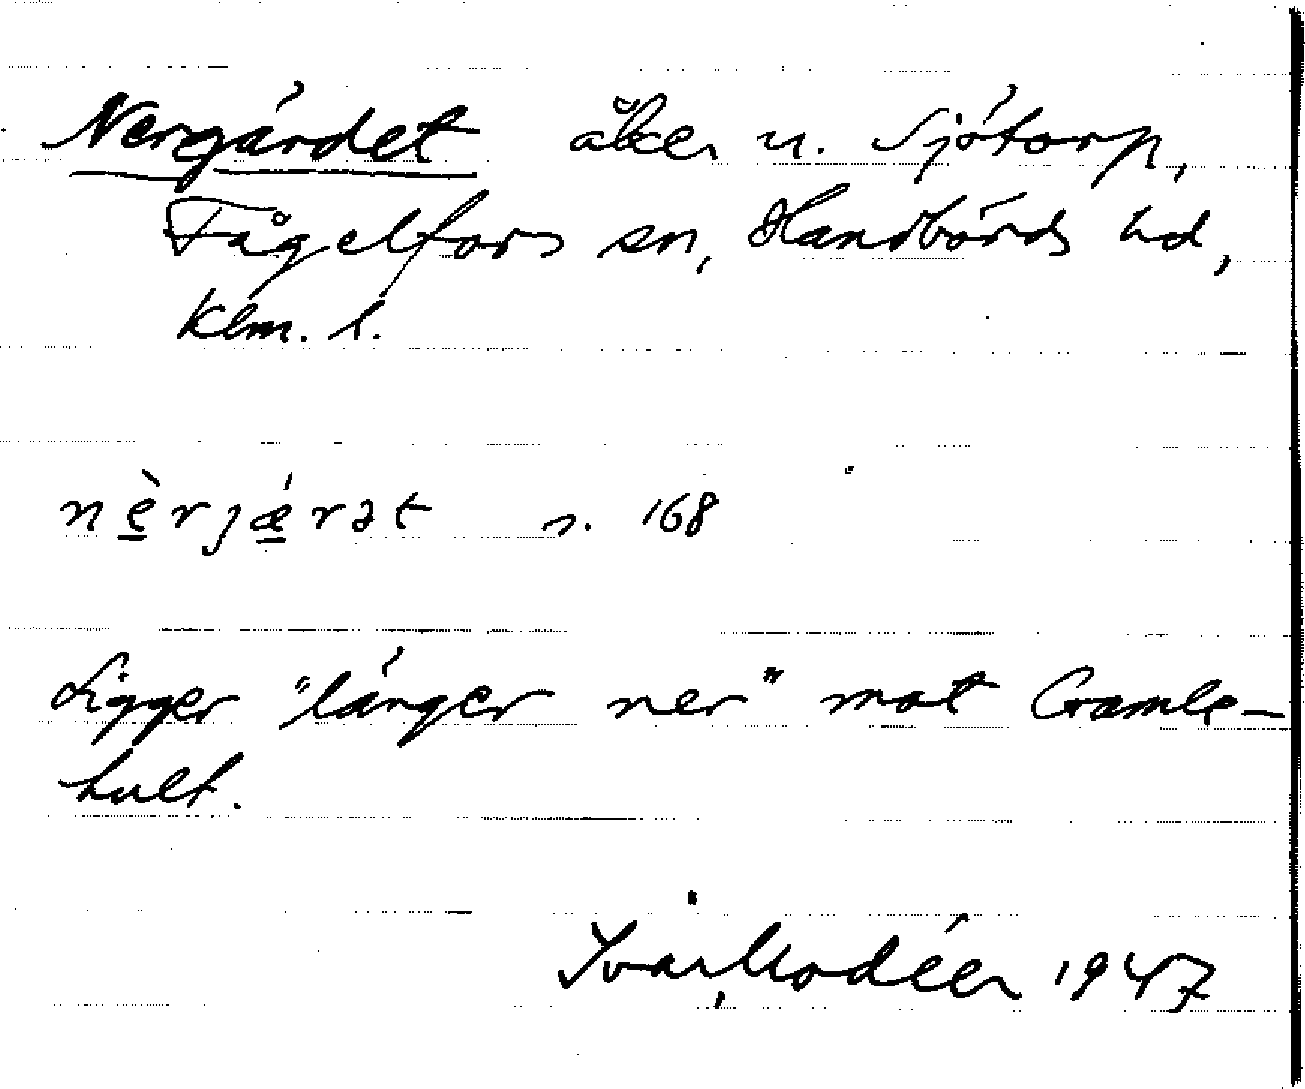 Nergärdet åker u. Sjötorp,
Fågelfors sn, Handbörds hd,
Klm. l.
nè̱rjǽ̱rət n. 168
Ligger "länger ner" mot Gamle-
hult.
Ivar Modéer 1947